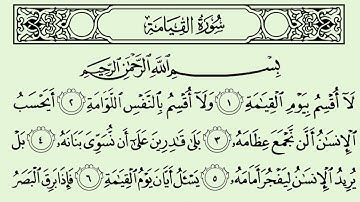 سُورَةُ القِيَامَةِ
بِسْمِ اللَّهِ الرَّحْمَٰنِ الرَّحِيمِ
لَآ أُقْسِمُ بِيَوْمِ ٱلْقِيَٰمَةِ ١ وَلَآ أُقْسِمُ بِٱلنَّفْسِ ٱللَّوَّامَةِ ٢ أَيَحْسَبُ
ٱلْإِنسَٰنُ أَلَّن نَّجْمَعَ عِظَامَهُۥ ٣ بَلَىٰ قَٰدِرِينَ عَلَىٰٓ أَن نُّسَوِّىَ بَنَانَهُۥ ٤ بَلْ
يُرِيدُ ٱلْإِنسَٰنُ لِيَفْجُرَ أَمَامَهُۥ ٥ يَسْـَٔلُ أَيَّانَ يَوْمُ ٱلْقِيَٰمَةِ ٦ فَإِذَا بَرِقَ ٱلْبَصَرُ